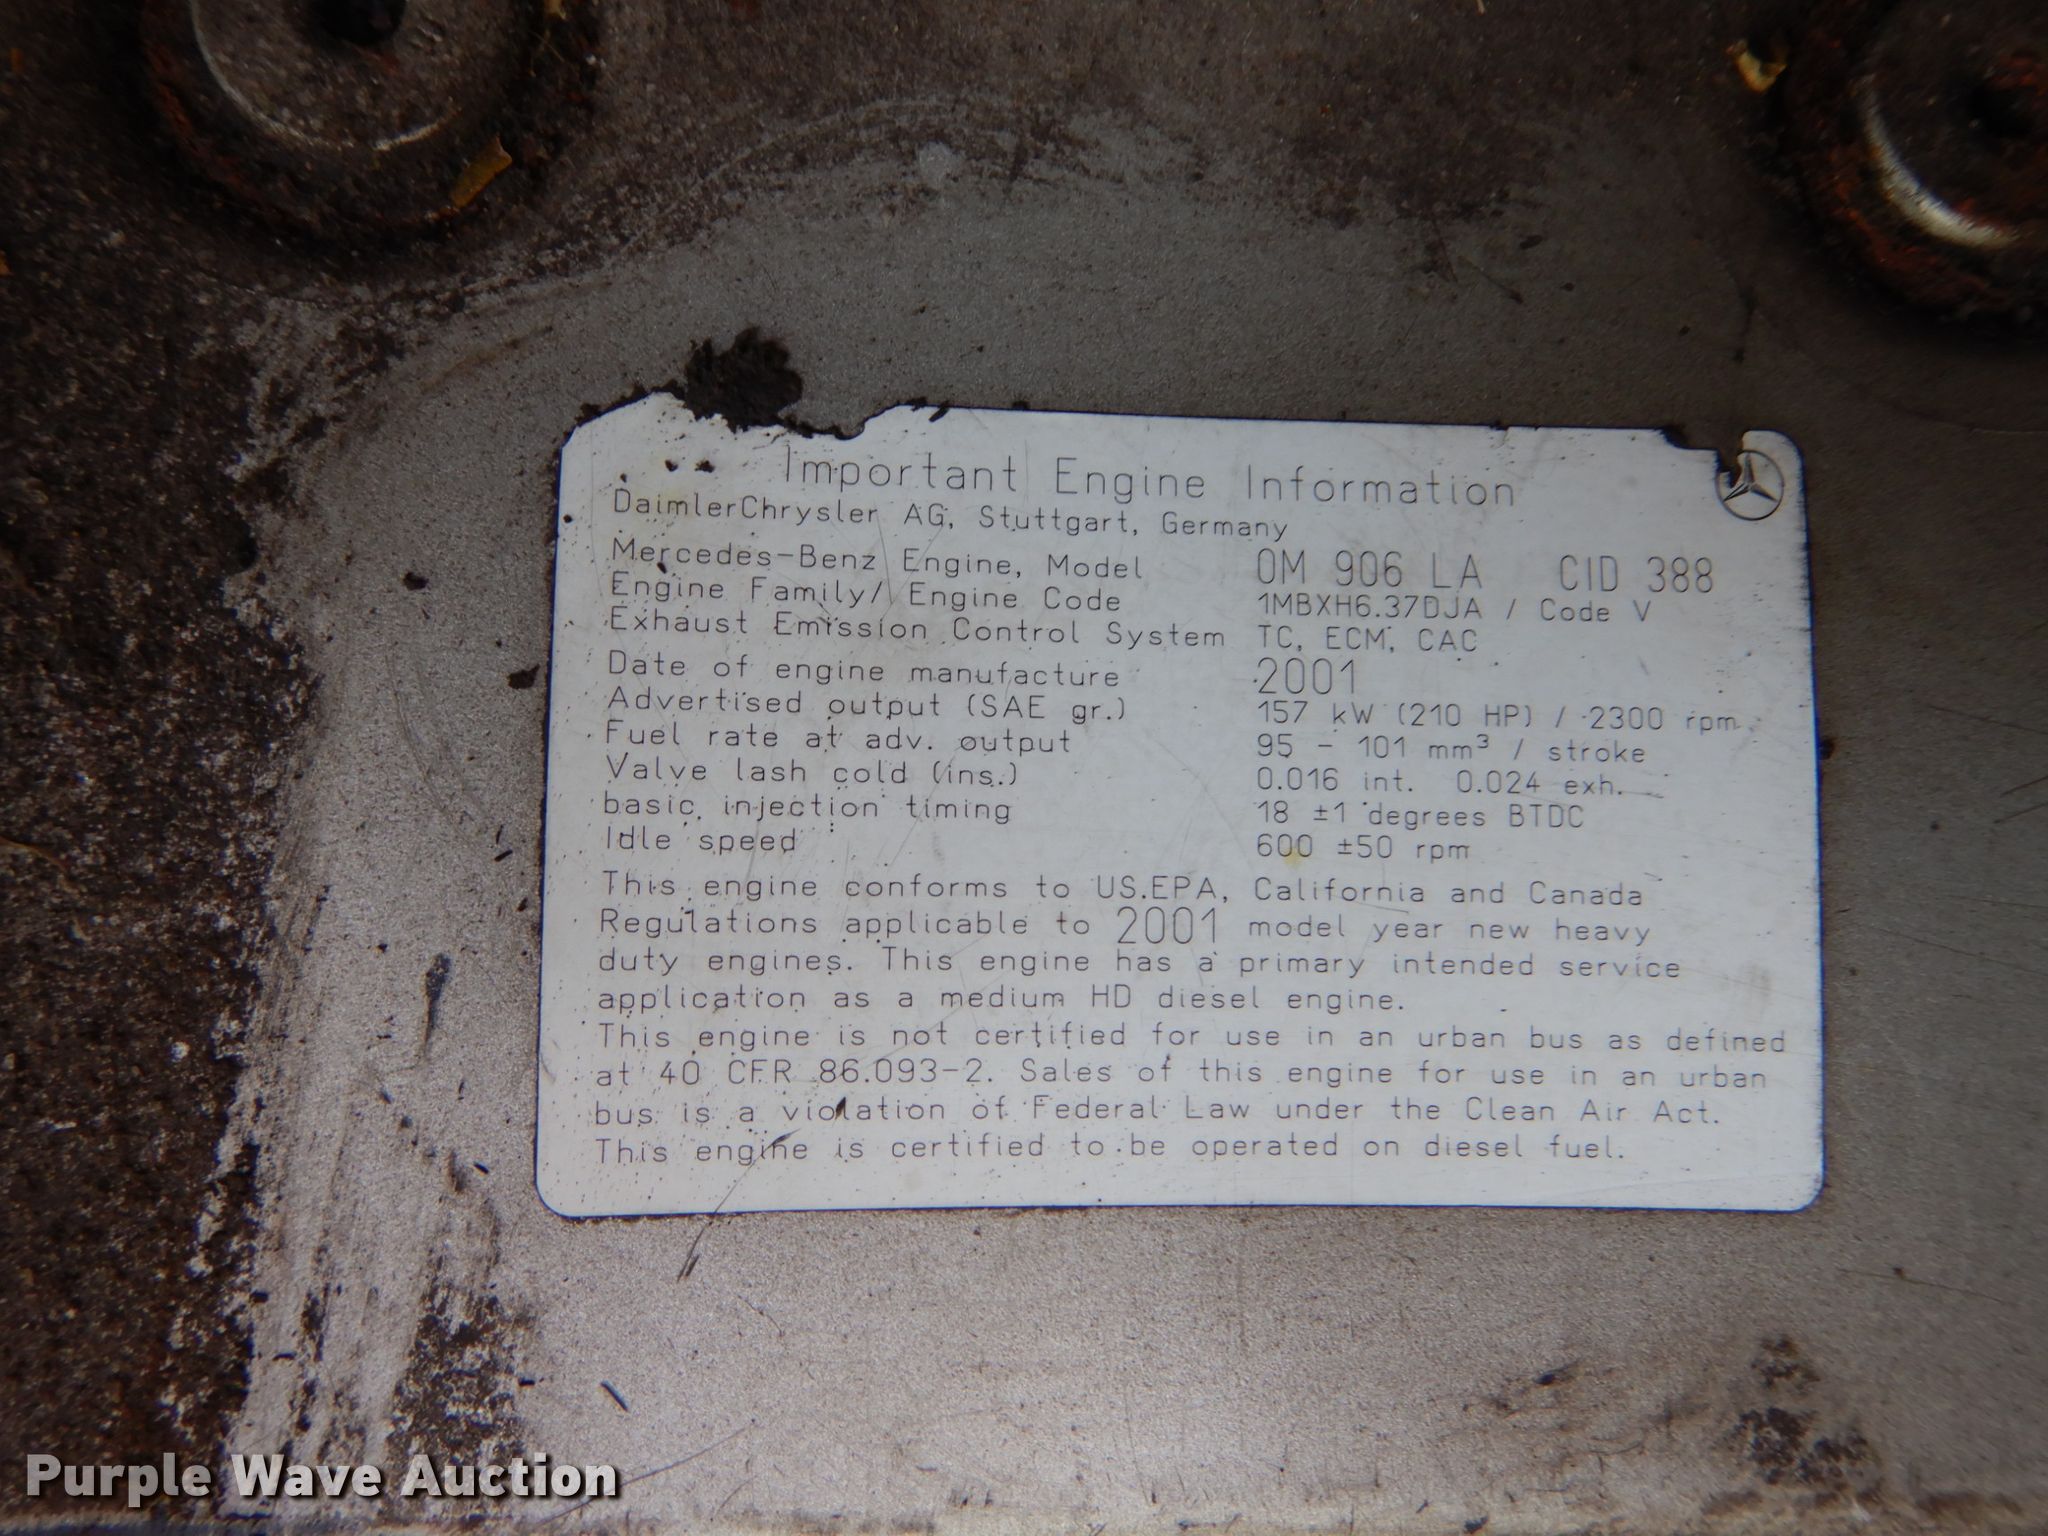 Important Engine Information
DaimlerChrysler AG, Stuttgart, Germany
Mercedes-Benz Engine, Model OM 906 LA CID 388
Engine Family/ Engine Code 1MBXH6.37DJA / Code V
Exhaust Emission Control System TC, ECM, CAC
Date of engine manufacture 2001
Advertised output (SAE gr.) 157 kW (210 HP) / 2300 rpm
Fuel rate at adv. output 95 - 101 mm³ / stroke
Valve lash cold (ins.) 0.016 int. 0.024 exh.
basic injection timing 18 ±1 degrees BTDC
Idle speed 600 ±50 rpm
This engine conforms to US.EPA, California and Canada
Regulations applicable to 2001 model year new heavy
duty engines. This engine has a primary intended service
application as a medium HD diesel engine.
This engine is not certified for use in an urban bus as defined
at 40 CFR 86.093-2. Sales of this engine for use in an urban
bus is a violation of Federal Law under the Clean Air Act.
This engine is certified to be operated on diesel fuel.
Purple Wave Auction